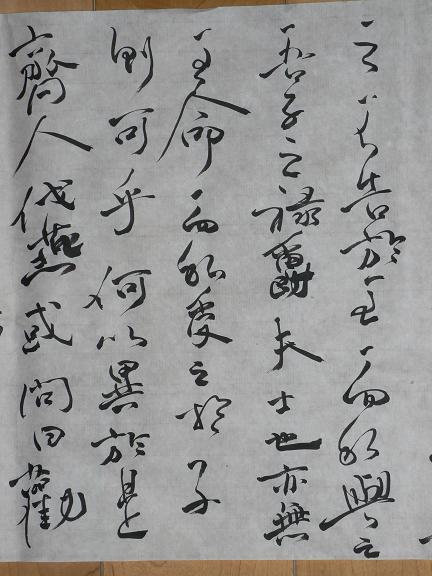 之不告於王而私與之
吾子之祿爵夫士也亦無
王命而私受之於子
則可乎何以異於是
齊人伐燕或問曰勸